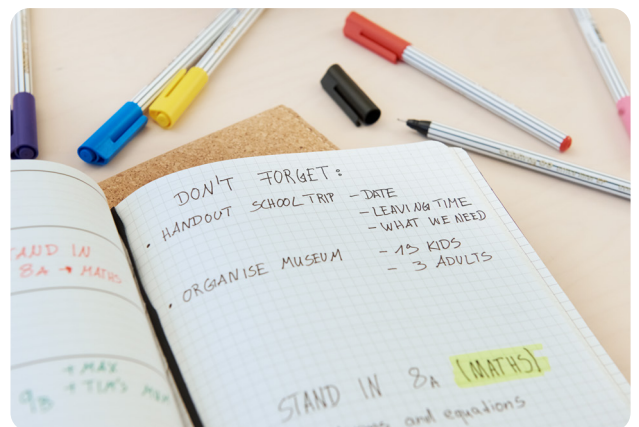 STAND IN
8A → MATHS
+ MAX
9B + TIM'S
DON'T FORGET:
• HANDOUT SCHOOL TRIP – DATE
– LEAVING TIME
– WHAT WE NEED
• ORGANISE MUSEUM – 19 KIDS
– 3 ADULTS
STAND IN 8A (MATHS)
and equations